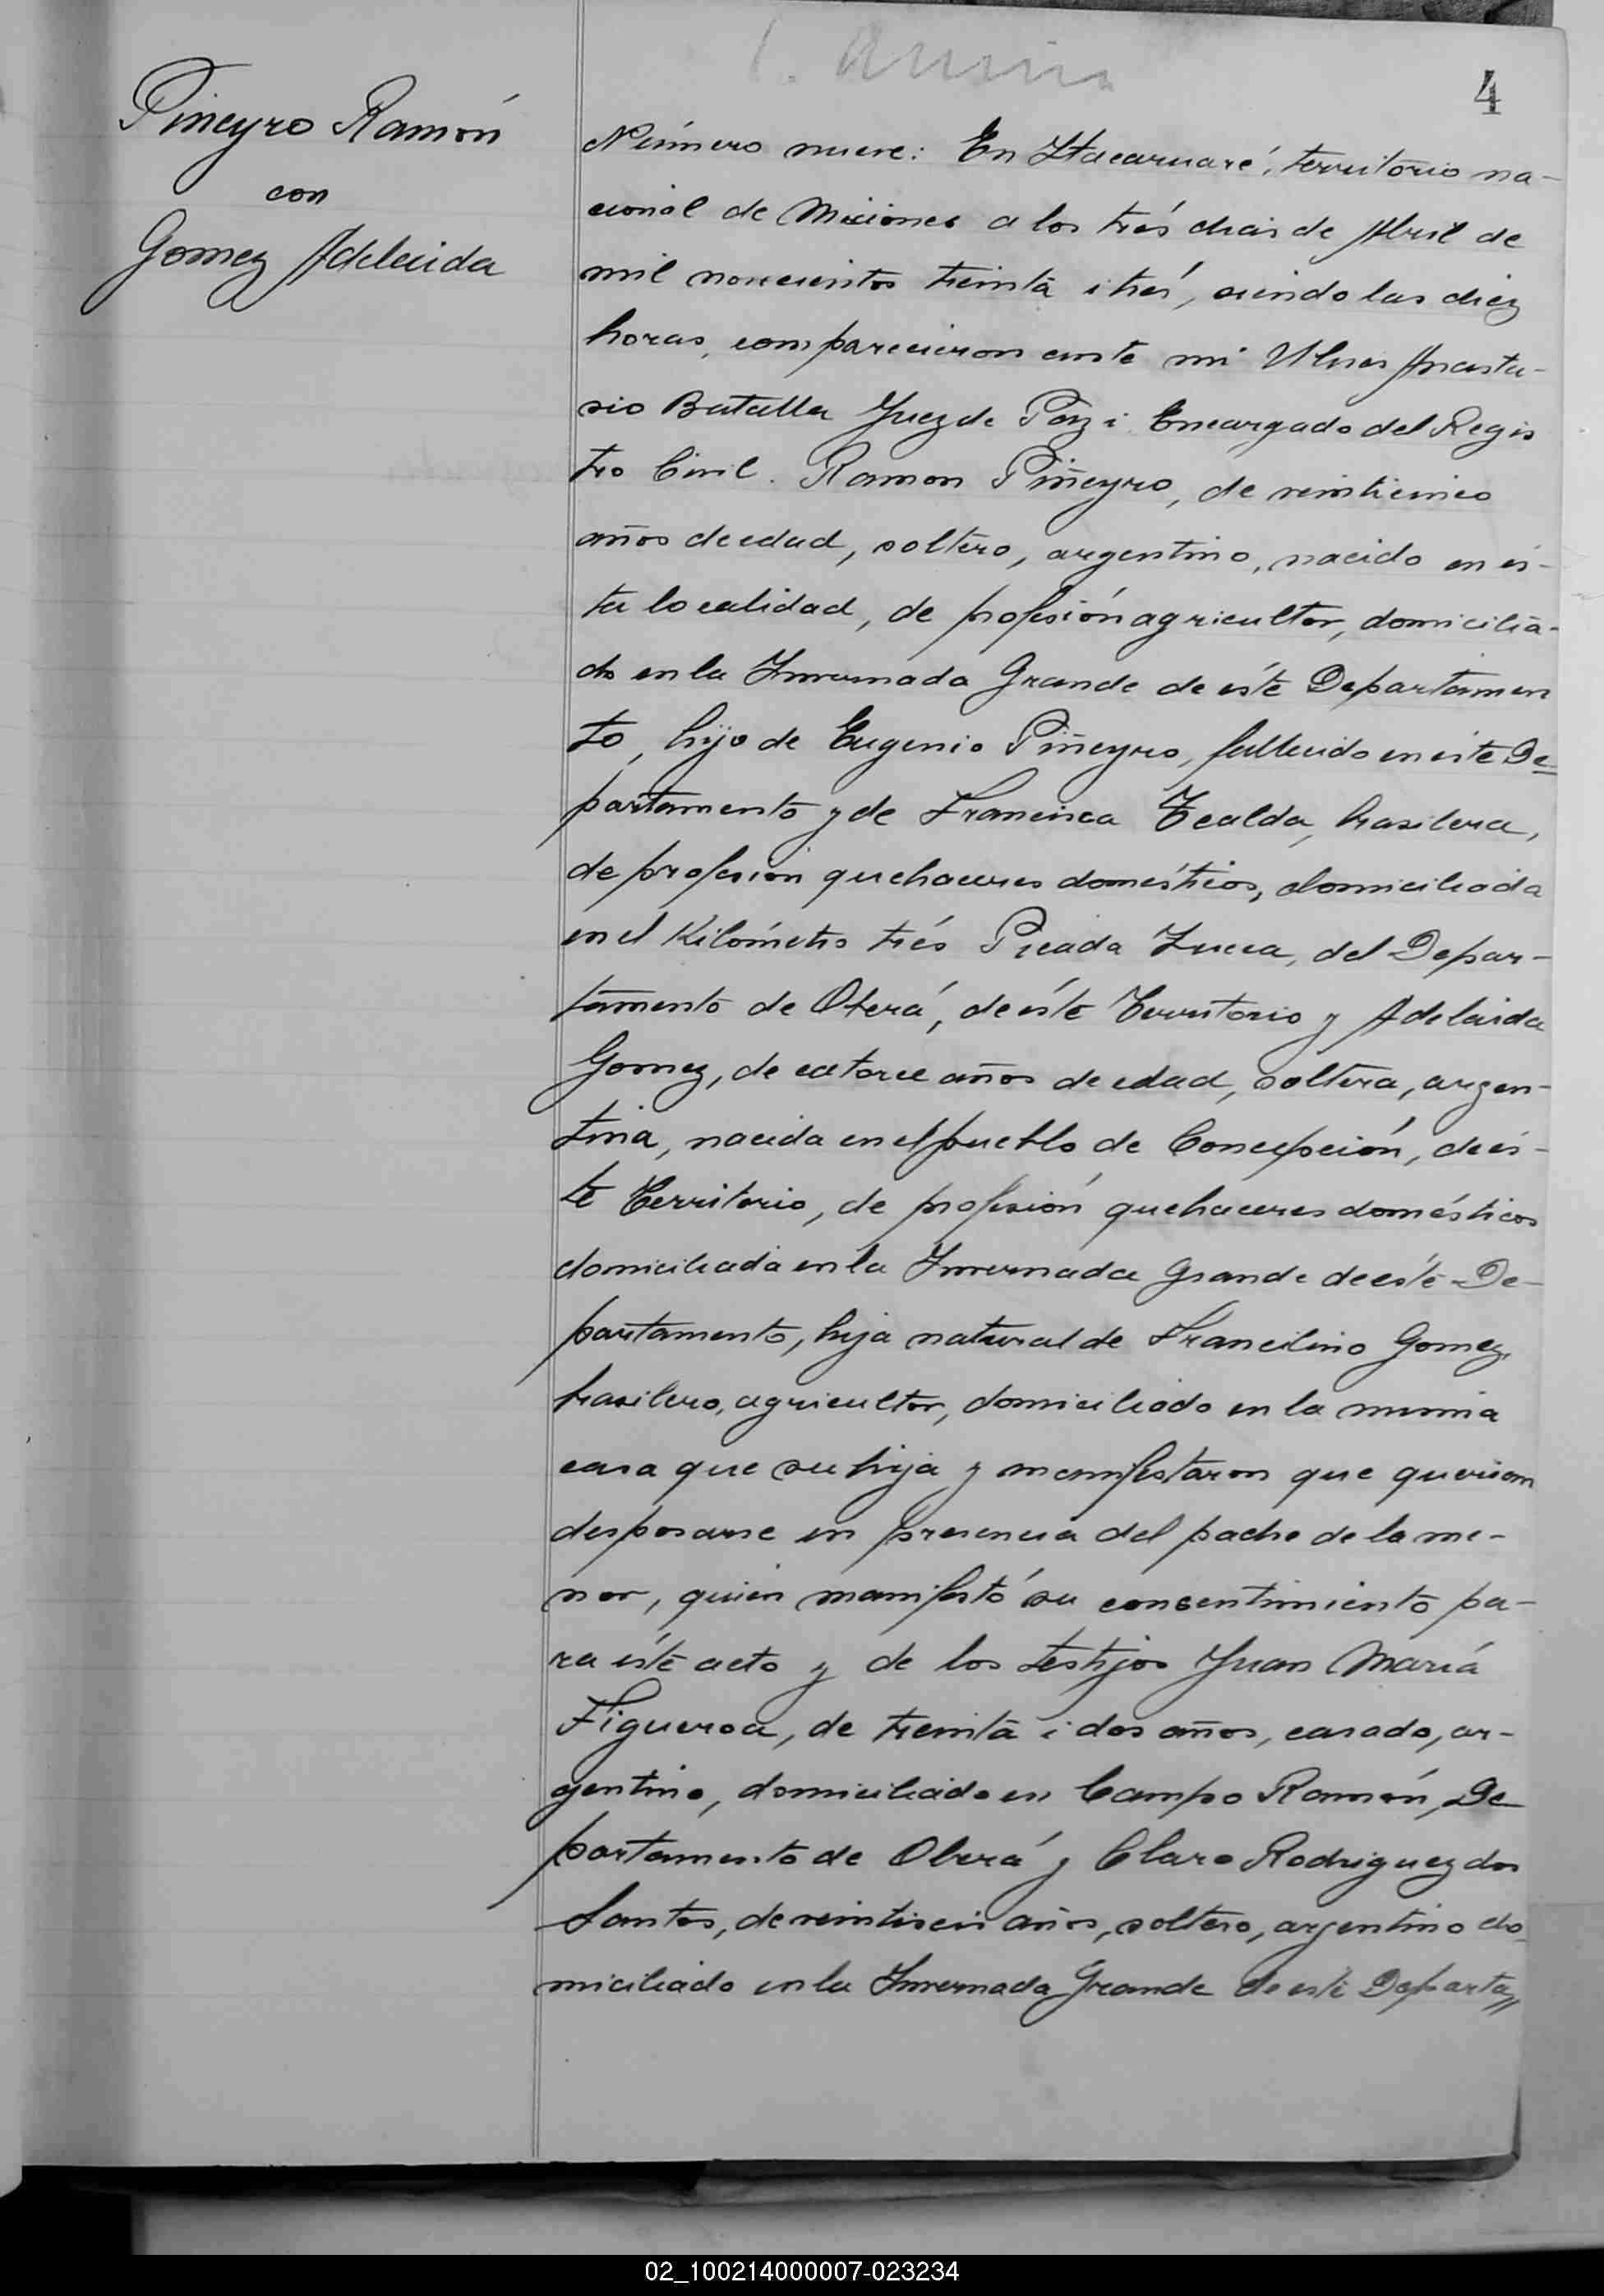 4
Piñeyro Ramón
con
Gomez Adelaida
Número nueve: En Itacaruaré, territorio na-
cional de Misiones a los trés dias de Abril de
mil novecientos treinta i trés, siendo las diez
horas, comparecieron ante mi Ulises Anasta-
sio Batalla Juez de Paz i Encargado del Regis
tro Civil. Ramon Piñeyro, de veinticinco
años de edad, soltero, argentino, nacido en és-
ta localidad, de profesión agricultor, domicilia-
do en la Invernada Grande de éste Departamen
to, hijo de Eugenio Piñeyro, fallecido en éste De=
partamento y de Francisca Tealda, brasilera,
de profesión quehaceres domésticos, domiciliada
en el Kilómetro trés Picada Zucca, del Depar-
tamento de Oberá, de éste Territorio y Adelaida
Gomez, de catorce años de edad, soltera, argen-
tina, nacida en el pueblo de Concepción, de és-
te Territorio, de profesión quehaceres domésticos
domiciliada en la Invernada Grande de éste De-
partamento, hija natural de Francilino Gomez,
brasilero, agricultor, domiciliado en la misma
casa que su hija y manifestaron que querian
desposarse en presencia del padre de la me-
nor, quien manifestó su consentimiento pa-
ra éste acto y de los testijos Juan María
Figueroa, de treinta i dos años, casado, ar-
gentino, domiciliado en Campo Ramón, De
partamento de Oberá y Claro Rodriguez dos
Santos, de veintiseis años, soltero, argentino do
miciliado en la Invernada Grande de este Departa„
02_100214000007-023234